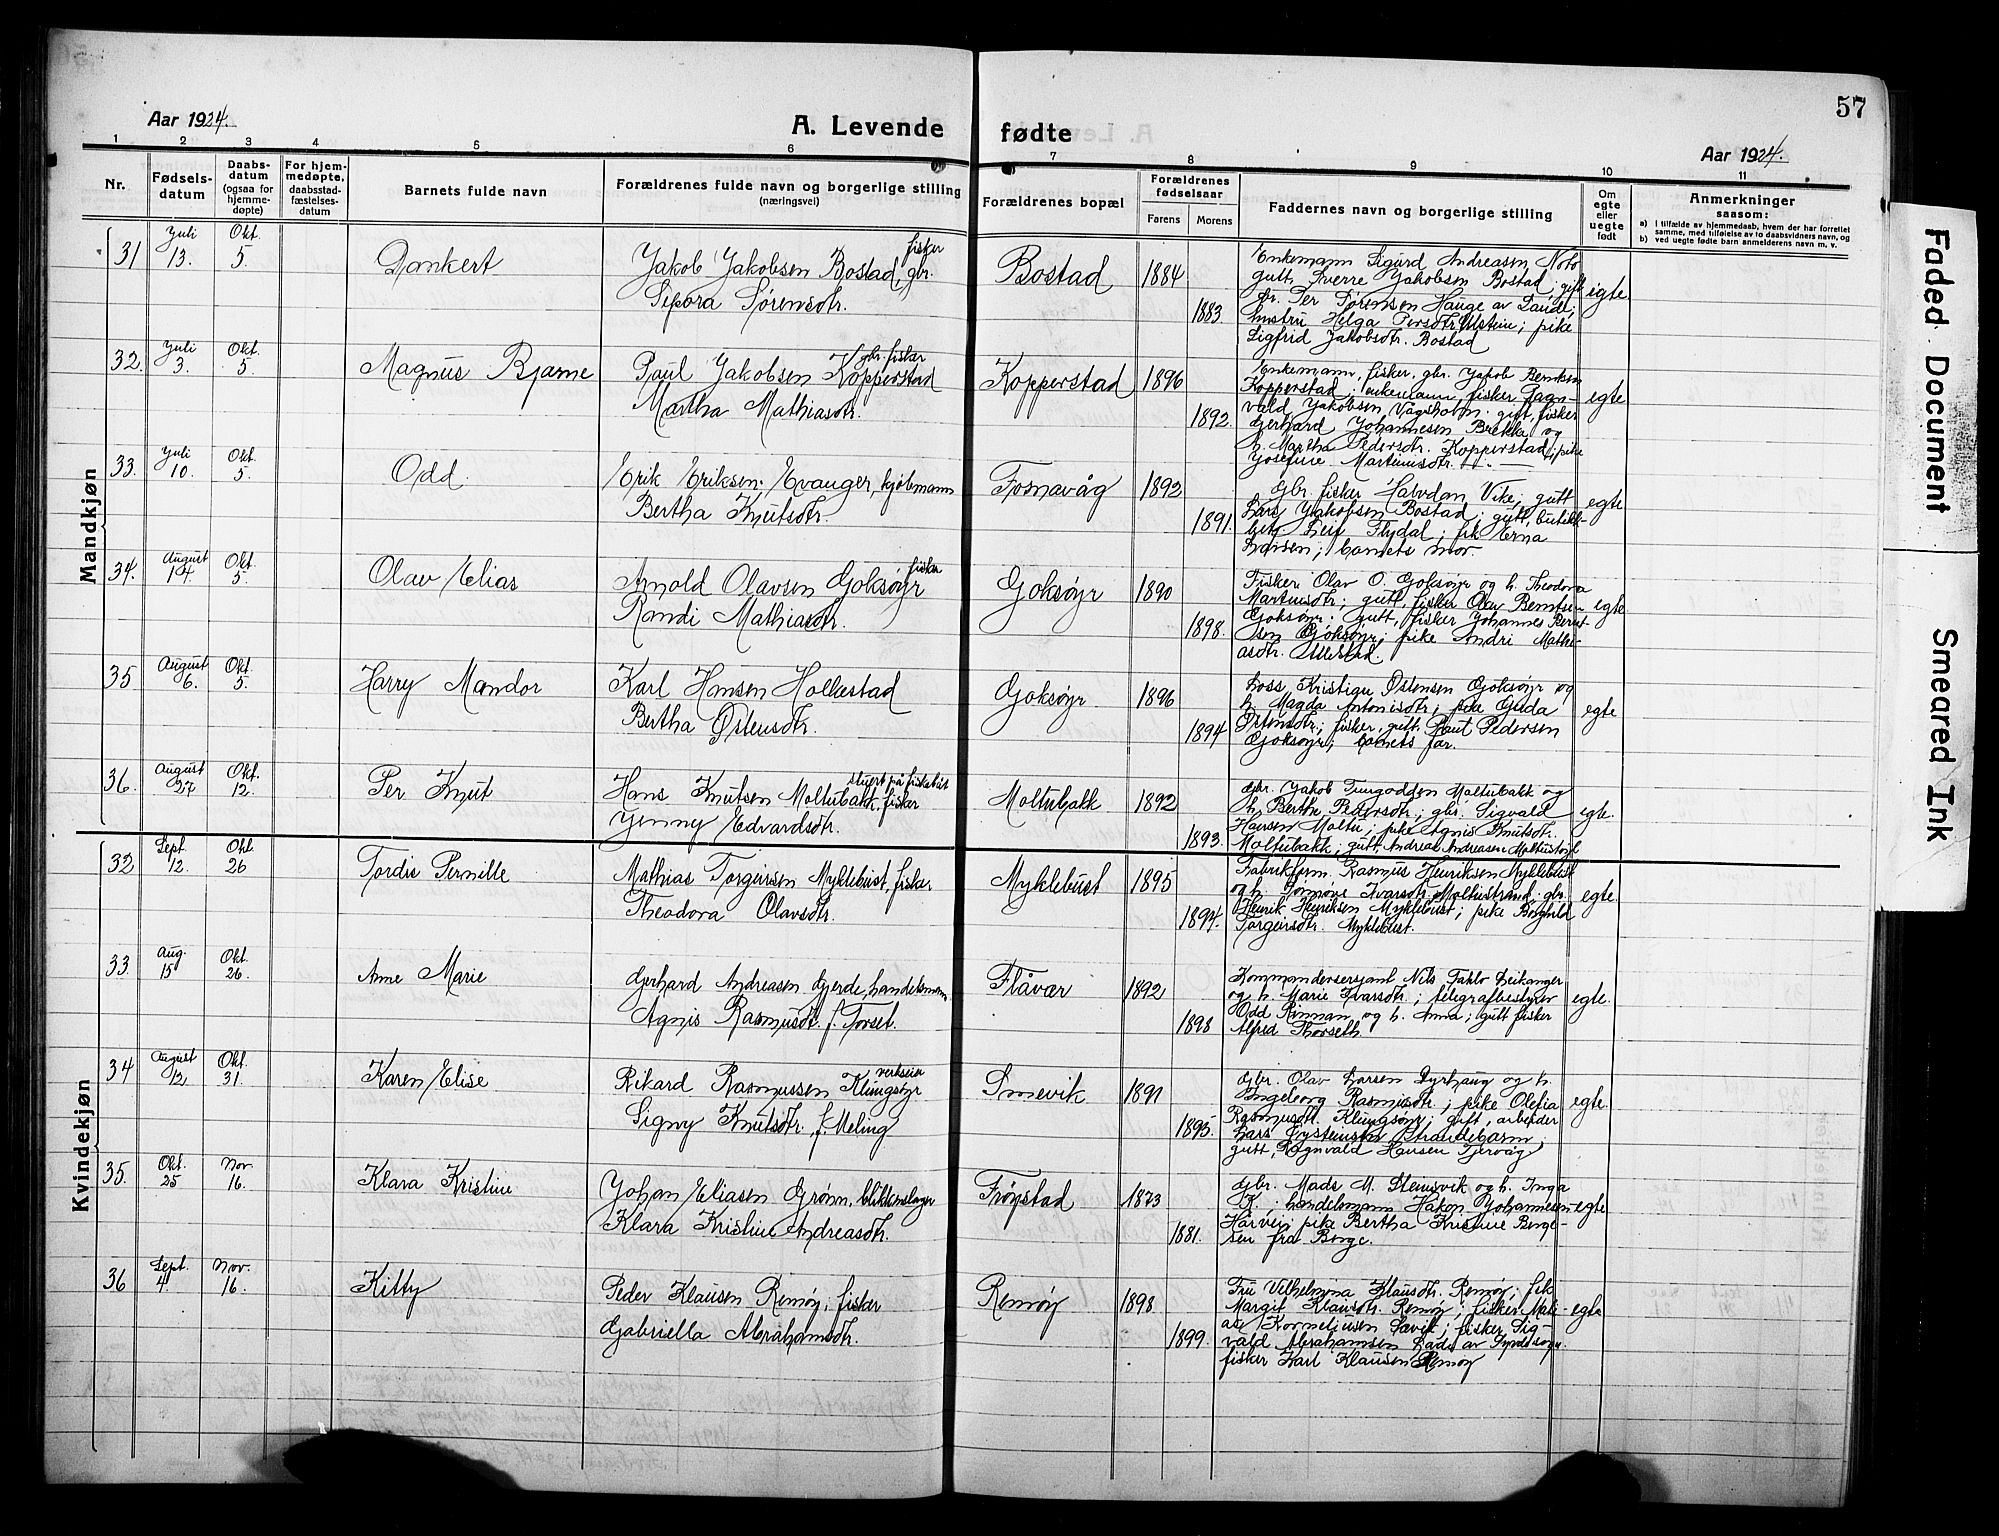 57
Aar 1924.
A. Levende fødte
Aar 1924.
1 2 3 4 5 6 7 8 9 10 11
Nr.
Fødselsdatum
Daabsdatum (ogsaa for hjemmedøpte)
For hjemmedøpte, daabsstadfæstelsesdatum
Barnets fulde navn
Forældrenes fulde navn og borgerlige stilling (næringsvei)
Forældrenes bopæl
Forældrenes fødselsaar
Farens
Morens
Faddernes navn og borgerlige stilling
Om egte eller uegte født
Anmerkninger
saasom:
a) I tilfælde av hjemmedaab, hvem der har forrettet samme, med tilføielse av to daabsvidners navn, og
b) ved uegte fødte barn anmelderens navn m. v.
Mandkjøn
31 Juli 13. Okt. 5. Dankert
Jakob Jakobsen Bostad, fisker gbr.
Sepora Sørensdtr.
Bostad 1884 1883.
Enkemann Sigurd Andreasen Notø
gutt Sverre Jakobsen Bostad; gift
gbr. Per Sørensen Hauge av Sande;
hustru Helga Persdtr. Ulstein; pike
Sigfrid Jakobsdtr. Bostad
egte
32. Juli 3. Okt. 5. Magnus Bjarne
Paul Jakobsen Kopperstad gbr. fisker
Martha Mathiasdtr.
Kopperstad 1896 1892.
Enkemann, fisker, gbr. Jakob Berntsen
Kopperstad; enkemann, fisker Ragn-
vald Jakobsen, Vågsholm; gift, fisker
Gerhard Johannesen Brekke og
h. Martha Pedersdtr. Kopperstad; pike
Josefine Martinusdtr.
egte
33. Juli 10. Okt. 5. Odd
Erik Eriksen Evanger, kjøbmann
Bertha Knutsdtr.
Fosnavåg 1892 1891.
Gbr. fisker Halvdan Vike; gutt
Lars Jakobsen Bostad; gutt, butikk-
betj. Leif Flydal; pik Erna
Larsen; barnets mor
egte
34. August 14. Okt. 5. Olav Elias
Arnold Olavsen Goksøyr fisker
Randi Mathiasdtr.
Goksøyr 1890 1898.
Fisker Olav O. Goksøyr og h. Theodora
Martinsdtr; gutt, fisker Olav Berntsen
Goksøyr; gutt, fisker Johannes Bernt-
sen Goksøyr; pike Andri Mathi-
asdtr. Ulvestad.
egte
35 August 6. Okt. 5. Harry Mandor
Karl Hansen Holkestad
Bertha Østensdtr.
Goksøyr 1896 1894
Loss Kristian Østensen Goksøyr og
h. Magda Antonisdtr; pike Guda
Østensdtr; fisker, gutt Paul Pedersen
Goksøyr; barnets far.
egte
36. August 27 Okt. 12. Per Knut
Hans Knutsen Moltubakk, fisker stuert på fiskebåt
Jenny Edvardsdtr.
Moltubakk 1892 1893.
Gbr. Jakob Tungodden Moltubakk og
h. Berthe Pedersdtr; gbr. Sigvald
Hansen Moltu; pike Agnis Knutsdtr.
Moltubakk; gutt Andreas Andreasen Moltustøyl
egte.
Kvindekjøn
32 Sept. 12. Okt. 26 Tordis Pernille
Mathias Torgeirsen Myklebust, fisker
Theodora Olavsdtr.
Myklebust 1895 1894.
Fabrikform. Rasmus Henriksen Myklebust
og h. Jørmøve Ivarsdtr. Moltustrand; gbr.
Henrik Henriksen Myklebust; pike Borghild
Torgeirsdtr. Myklebust.
egte.
33. Aug. 15 Okt. 26. Anne Marie
Gerhard Andreasen Gjerde, handelsmann
Agnis Rasmusdtr. f. Torset.
Flåvær 1892 1898
Kommandersersjant Nils Taklo Leikanger
og h. Marie Ivarsdtr.; telegrafbestyrer
Odd Rinnan og h. Anna; gutt fisker
Alfred Thorseth.
egte.
34 August 12. Okt. 31. Karen Elise
Rikard Rasmussen Klungsøyr verkseier
Signy Knutsdtr. f. Meling
Smevik 1891 1895.
Gbr. Olav Larsen Dyrhaug og h.
Ingeborg Rasmusdtr.; pike Olefia
Rasmusdtr. Klungsøyr; gift, arbeider
Lars Øysteinsen Strandebarm;
gutt, Ragnvald Hansen Tjervåg
egte.
35. Okt. 25 Nov. 16. Klara Kristine
Johan Eliasen Grønn, blikkenslager
Klara Kristine Andreasdtr.
Frøystad 1873 1881.
Gbr. Mads M. Stemsvik og h. Inga
K.; handelsmann Håkon Johannesen
Harvei; pike Bertha Kristine Berge-
sen fra Borge.
egte
36 Sept. 4 Nov. 16. Kitty
Peder Klausen Remøy, fisker
Gabriella Abrahamsdtr.
Remøy 1898 1899.
Fru Vilhelmina Klausdtr. Remøy; pik
Margit Klausdtr. Remøy; fisker Mati-
as Korneliusen Sævik; fisker Sig-
vald Abrahamsen Lade av Syvdsogn
fisker Karl Klausen Remøy
egte
Faded Document
Smeared Ink